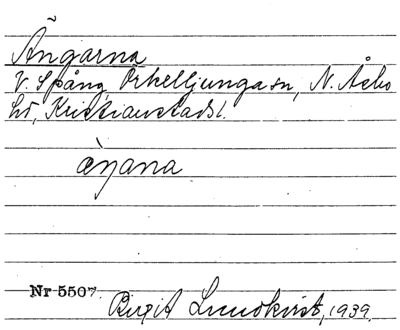 Ängarna
V. Spång, Örkelljunga sn, N. Åsbo
hd, Kristianstads l.
æ̀ŋana
Nr 5507.
Birgit Lundkvist, 1939.